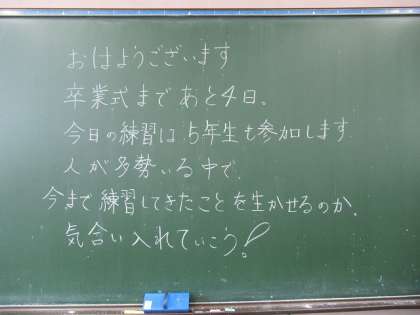 おはようございます
卒業式まであと4日。
今日の練習は5年生も参加します。
人が多勢いる中で、
今まで練習してきたことを生かせるのか。
気合い入れていこう!